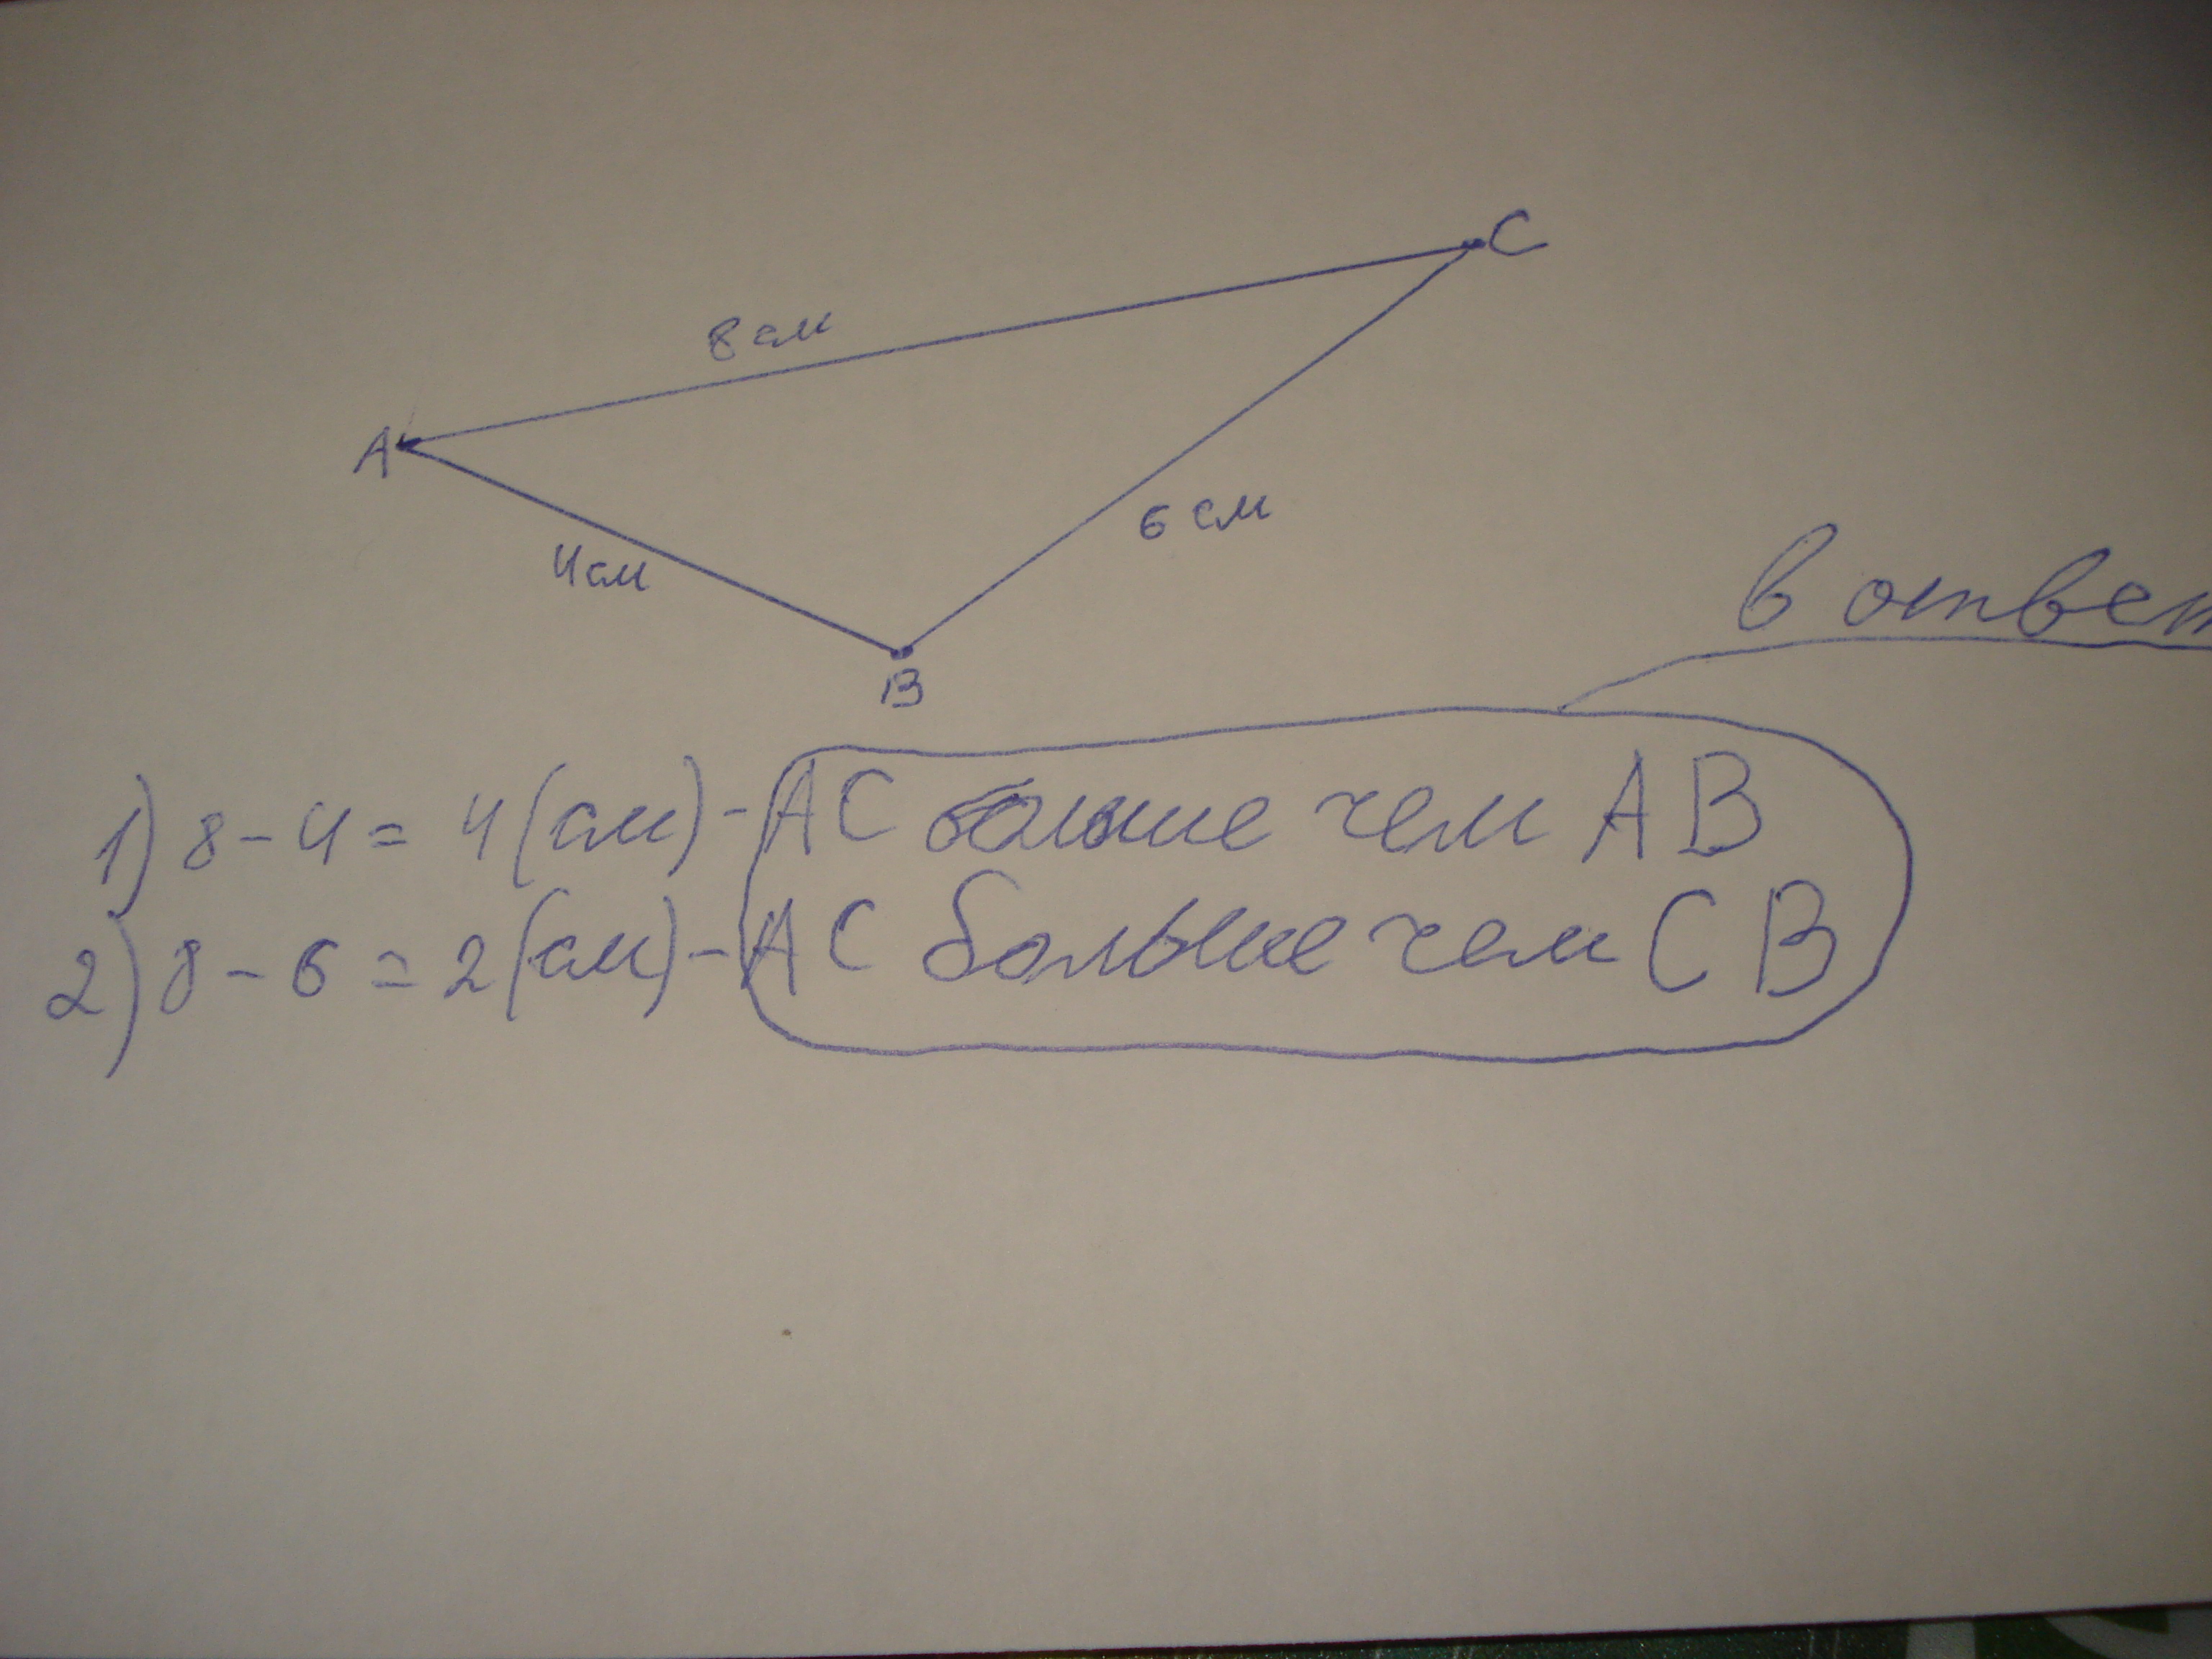 C
8 см
A
6 см
4 см
B
в ответ
1) 8 - 4 = 4 (см) - AC больше чем AB
2) 8 - 6 = 2 (см) - AC больше чем CB